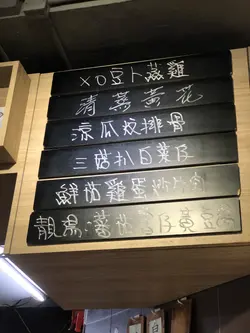 XO豆卜蒸雞
清蒸黃花
涼瓜炆排骨
三菇扒白菜仔
鮮茄雞蛋炒
靚湯:蕃茄薯仔黃豆